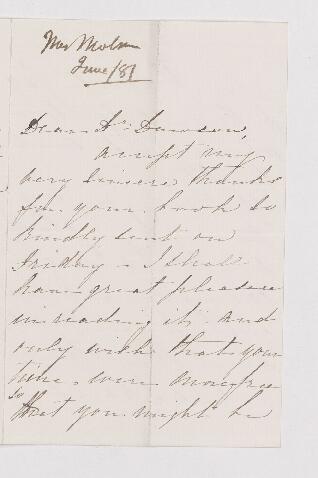 Mrs Molson
June/81
Dear Dr. Dawson,
accept my
very sincere thanks
for your book so
kindly sent on
Friday - I shall
have great pleasure
in reading it, and
only wish that your
time were more free
so
that you might be